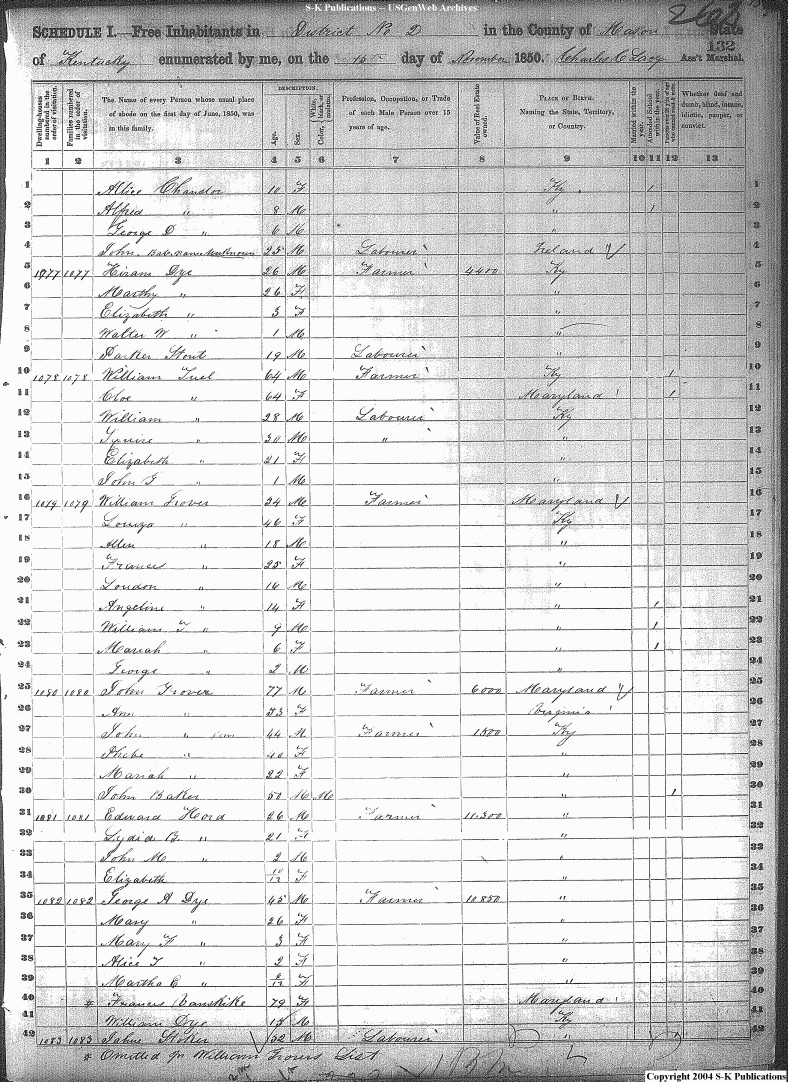 S-K Publications -- USGenWeb Archives
263
SCHEDULE I.—Free Inhabitants in District No 2 in the County of Mason State
132
of Kentucky enumerated by me, on the 16 day of November 1850. Charles C Lacy Ass't Marshal.
Dwelling-houses numbered in the order of visitation.
Families numbered in the order of visitation.
The Name of every Person whose usual place of abode on the first day of June, 1850, was in this family.
DESCRIPTION.
Age.
Sex.
Color, White, black, or mulatto.
Profession, Occupation, or Trade of each Male Person over 15 years of age.
Value of Real Estate owned.
PLACE OF BIRTH. Naming the State, Territory, or Country.
Married within the year.
Attended School within the year.
Whether deaf and dumb, blind, insane, idiotic, pauper, or convict.
1 2 3 4 5 6 7 8 9 10 11 12 13
1 Alice Chandor 10 F Ky 1 1
2 Alfred " 8 M " 1 2
3 George D " 6 M " 3
4 John 25 M Labourer Ireland 4
5 1077 1077 Hiram Dye 26 M Farmer 4400 Ky 5
6 Marthy " 26 F " 6
7 Elizabeth " 3 F " 7
8 Walter W " 1 M " 8
9 Parker Stout 19 M Labourer " 9
10 1078 1078 William Tuel 64 M Farmer Ky 1 10
11 Cloe " 64 F Maryland 1 11
12 William " 28 M Labourer Ky 12
13 Squire " 30 M " " 13
14 Elizabeth " 21 F " 14
15 John " 1 M " 15
16 1079 1079 William Grover 34 M Farmer Maryland 16
17 Louiza " 46 F Ky 17
18 Allen " 18 M " 18
19 Frances " 25 F " 19
20 London " 16 M " 20
21 Angeline " 14 F " 1 21
22 William T " 9 M " 1 22
23 Mariah " 6 F " 1 23
24 George " 2 M " 24
25 1080 1080 John Grover 77 M Farmer 6000 Maryland 25
26 Ann " 53 F Virginia 26
27 John " jun 44 M Farmer 1500 Ky 27
28 Phebe " 40 F " 28
29 Mariah " 22 F " 29
30 John Baker 50 M M " 1 30
31 1081 1081 Edward Hord 26 M Farmer 11.300 " 31
32 Lydia B. " 21 F " 32
33 John M " 2 M " 33
34 Elizabeth 10/12 F " 34
35 1082 1082 George A Dye 45 M Farmer 10.850 " 35
36 Mary " 26 F " 36
37 Mary F " 3 F " 37
38 Alice T " 2 F " 38
39 Martha E " 6/12 F " 39
40 * Frances Vanskike 79 F Maryland 40
41 William Dye 15 M Ky 41
42 1083 1083 Stoker 52 M Labourer " 42
* Omitted in William Grovers List
Copyright 2004 S-K Publications